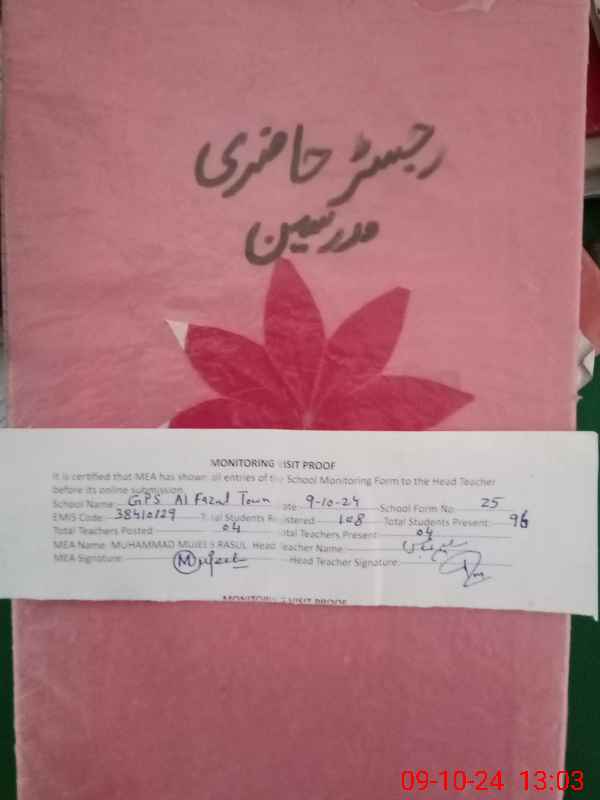 رجسٹر حاضری
مدرسین
MONITORING VISIT PROOF
It is certified that MEA has shown all entries of the School Monitoring Form to the Head Teacher
before its online submission
School Name: GPS Al Fazal Town Date 9-10-24 School Form No. 25
EMIS Code: 38410129 Total Students Registered 108 Total Students Present: 96
Total Teachers Posted 04 Total Teachers Present: 04
MEA Name: MUHAMMAD MUJEEB RASUL Head Teacher Name:
MEA Signature: Mujeeb Head Teacher Signature:
MONITORING VISIT PROOF
09-10-24 13:03